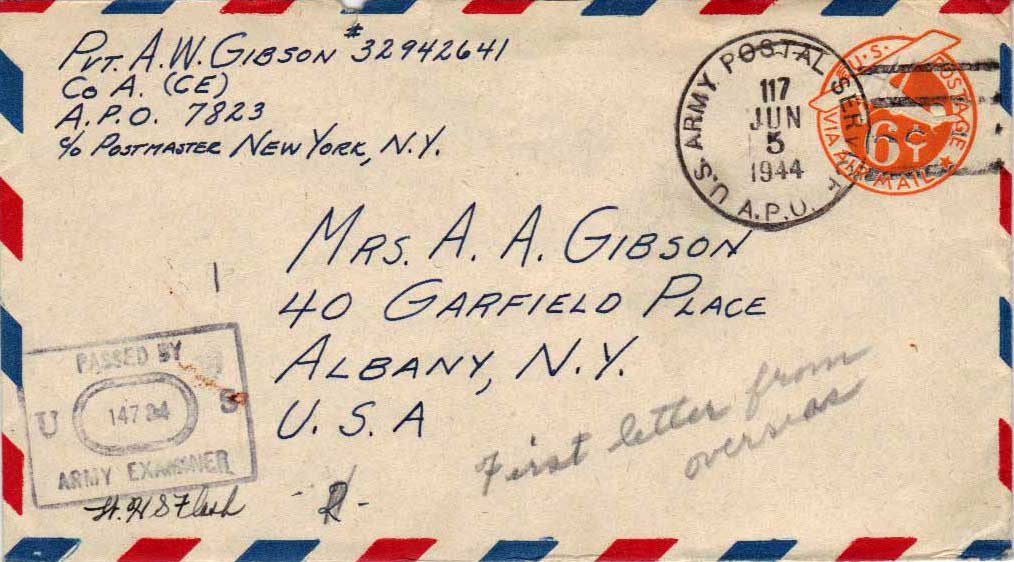 PVT. A.W. GIBSON #32942641
CO A. (CE)
A.P.O. 7823
c/o POSTMASTER NEW YORK, N.Y.
U.S. ARMY POSTAL SERVICE
117
JUN
5
1944
A.P.O.
U.S. POSTAGE
6¢
VIA AIR MAIL
MRS. A. A. GIBSON
40 GARFIELD PLACE
ALBANY, N.Y.
U.S.A
First letter from
overseas
PASSED BY
U S
ARMY EXAMINER